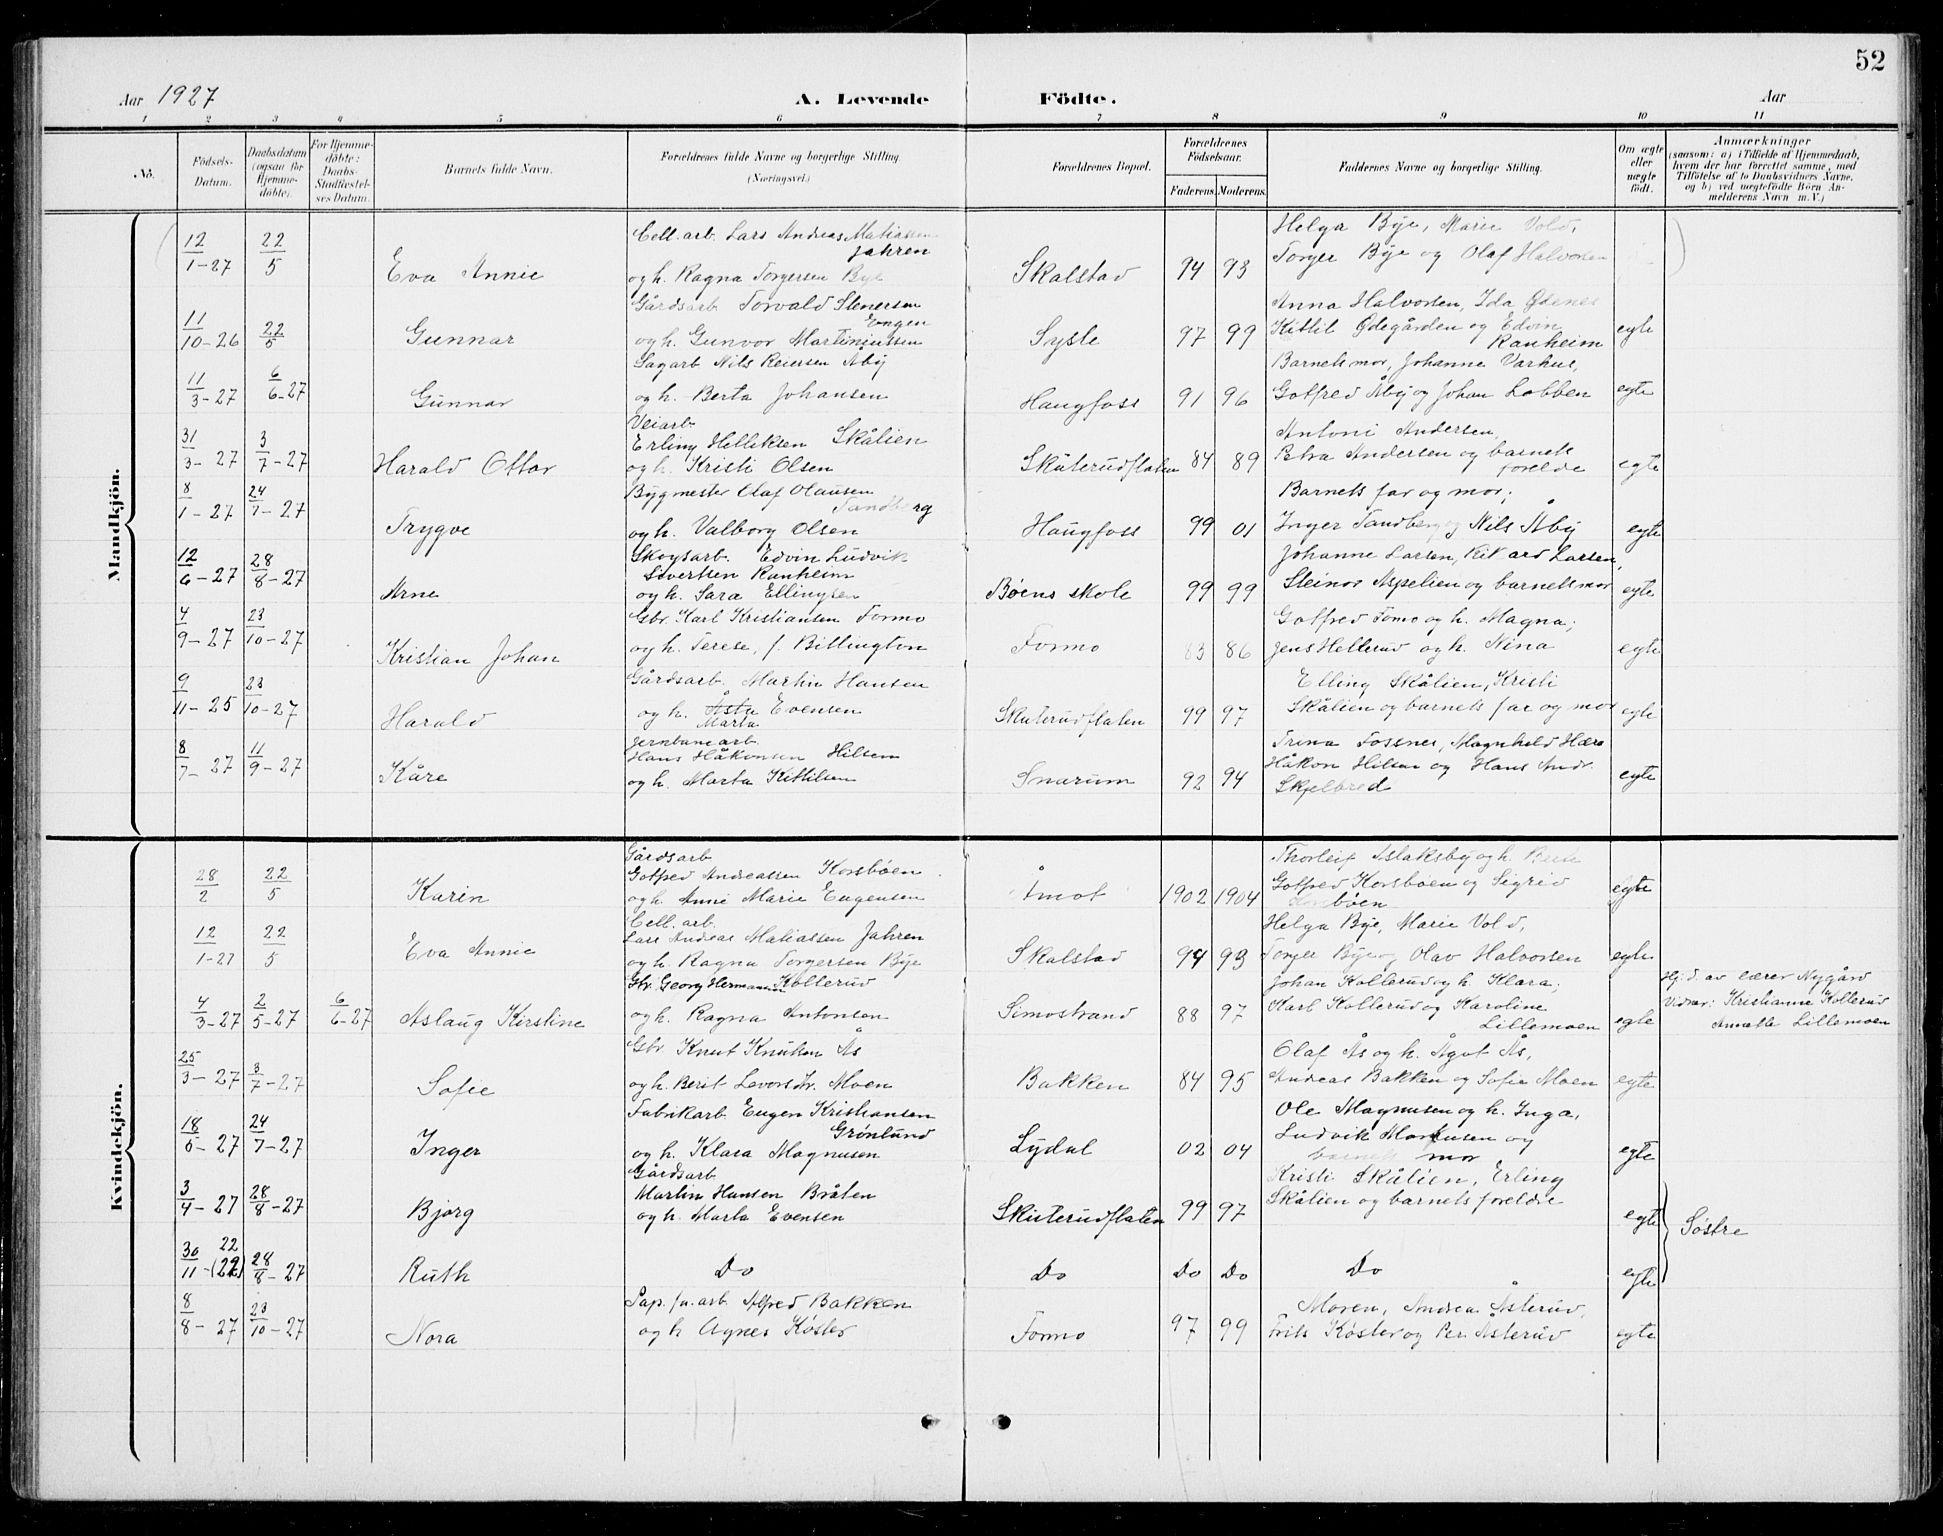 52
Aar 1927
A. Levende Födte.
Aar
1 2 3 4 5 6 7 8 9 10 11
No.
Födsels-Datum.
Daabsdatum (ogsaa for Hjemmedöbte).
For Hjemmedöbte: Daabs-Stadfæstelses Datum.
Barnets fulde Navn.
Forældrenes fulde Navne og borgerlige Stilling. (Næringsvei.)
Forældrenes Bopæl.
Forældrenes Födselsaar.
Faderens. Moderens.
Faddernes Navne og borgerlige Stilling.
Om ægte eller uægte födt.
Anmærkninger
(saasom: a) i Tilfælde af Hjemmedaab, hvem der har forrettet samme, med Tilföielse af to Daabsvidners Navne, og b) ved uægtefödte Börn Anmelderens Navn m.V.)
Mandkjön.
12/1-27 22/5 Eva Annie
Cell. arb. Lars Andreas Matiassen Jahren
og h. Ragna Torgersen Bye
Skalstad 94 93
Helga Bye, Marie Vold,
Torger Bye og Olaf Halvorsen
11/10-26 22/5 Gunnar
Gårdsarb. Torvald Stenersen Engen
og h. Gunvor Martiniussen
Sysle 97 99
Anna Halvorsen, Ida Ødenes
Kittil Ødegården og Edvin Ranheim
egte
11/3-27 6/6-27 Gunnar
Sagarb. Nils Reiersen Åby
og h. Berta Johansen
Haugfoss 91 96
Barnets mor, Johanne Varhus,
Gotfred Åby og Johan Lobben
egte
31/3-27 3/7-27 Harald Ottar
Veiarb.
Erling Helliksen Skålien
og h. Kristi Olsen
Skuterudflaten 84 89
Antoni Andersen,
Petra Andersen og barnets forelde
egte
8/1-27 24/7-27 Trygve
Bygmester Olaf Olausen Tandberg
og h. Valborg Olsen
Haugfoss 99 01
Barnets far og mor;
Inger Tandberg og Nils Åby
egte
12/6-27 28/8-27 Arne
Skogsarb. Edvin Ludvik
Sivertsen Ranheim
og h. Sara Ellingsen
Bøens skole 99 99
Johanne Larsen, Rikard Larsen,
Steinar Aspelien og barnets mor
egte
4/9-27 23/10-27 Kristian Johan
Gbr. Karl Kristiansen Formo
og h. Terese, f. Billington
Formo 83 86
Gotfred Fomo og h. Magna;
Jens Hellerud og h. Nina
egte
9/11-25 23/10-27 Harald
Gårdsarb. Martin Hansen
og h. Åsta Evensen
Marta
Skuterudflaten 99 97
Elling Skålien, Kristi
Skålien og barnets far og mor
egte
8/7-27 11/9-27 Kåre
Jernbanearb.
Hans Håkonsen Hilsen
og h. Marta Kittilsen
Snarum 92 94
Trina Fossnes, Magnhild Hære
Håkon Hilsen og Hans Andr.
Skjelbred
egte
Kvindekjön.
28/2 22/5 Karin
Gårdsarb
Gotfred Andreassen Korsbøen
og h. Anne Marie Eugensen
Åmot 1902 1904
Thorleif Aslaksby og h. Berte
Gotfred Korsbøen og Sigrid
Korsbøen
egte
12/1-27 22/5 Eva Annie
Cell. arb.
Lars Andreas Matiassen Jahren
og h. Ragna Torgersen Bye
Skalstad 94 93
Helga Bye, Marie Vold,
Torger Bye og Olav Halvorsen
egte
4/3-27 2/5-27 6/6-27 Aslaug Kirstine
Gbr. Georg Hermansen Kollerud
og h. Ragna Antonsen
Simostrand 88 97
Johan Kollerud og h. Klara;
Karl Kollerud og Karoline
Lillemoen
egte
Hj.d. av lærer Nygård
Vidner: Kristianne Kollerud
Annette Lillemoen
25/3-27 3/7-27 Sofie
Gbr. Knut Knutsen Ås
og h. Berit Levorsdr. Moen
Bakken 84 95
Olaf Ås og h. Ågot Ås,
Andreas Bakken og Sofie Moen
egte
18/5-27 24/7-27 Inger
Fabrikarb. Eugen Kristiansen
Grønlund
og h. Klara Magnusen
Lydal 02 04
Ole Magnusen og h. Inga,
Ludvik Markusen og
barnets mor
egte
3/4-27 28/8-27 Bjørg
Gårdsarb
Martin Hansen Bråten
og h. Marta Evensen
Skuterudflaten 99 97
Kristi Skålien, Erling
Skålien og barnets forelde
egte
Søstre
30/11-22 (22) 28/8-27 Ruth
Do Do Do Do Do
egte
8/8-27 23/10-27 Nora
Pap. fa. arb. Alfred Bakken
og h Agnes Køster
Formo 97 99
Moren, Andrea Åsterud,
Frits Køster og Per Åsterud
egte